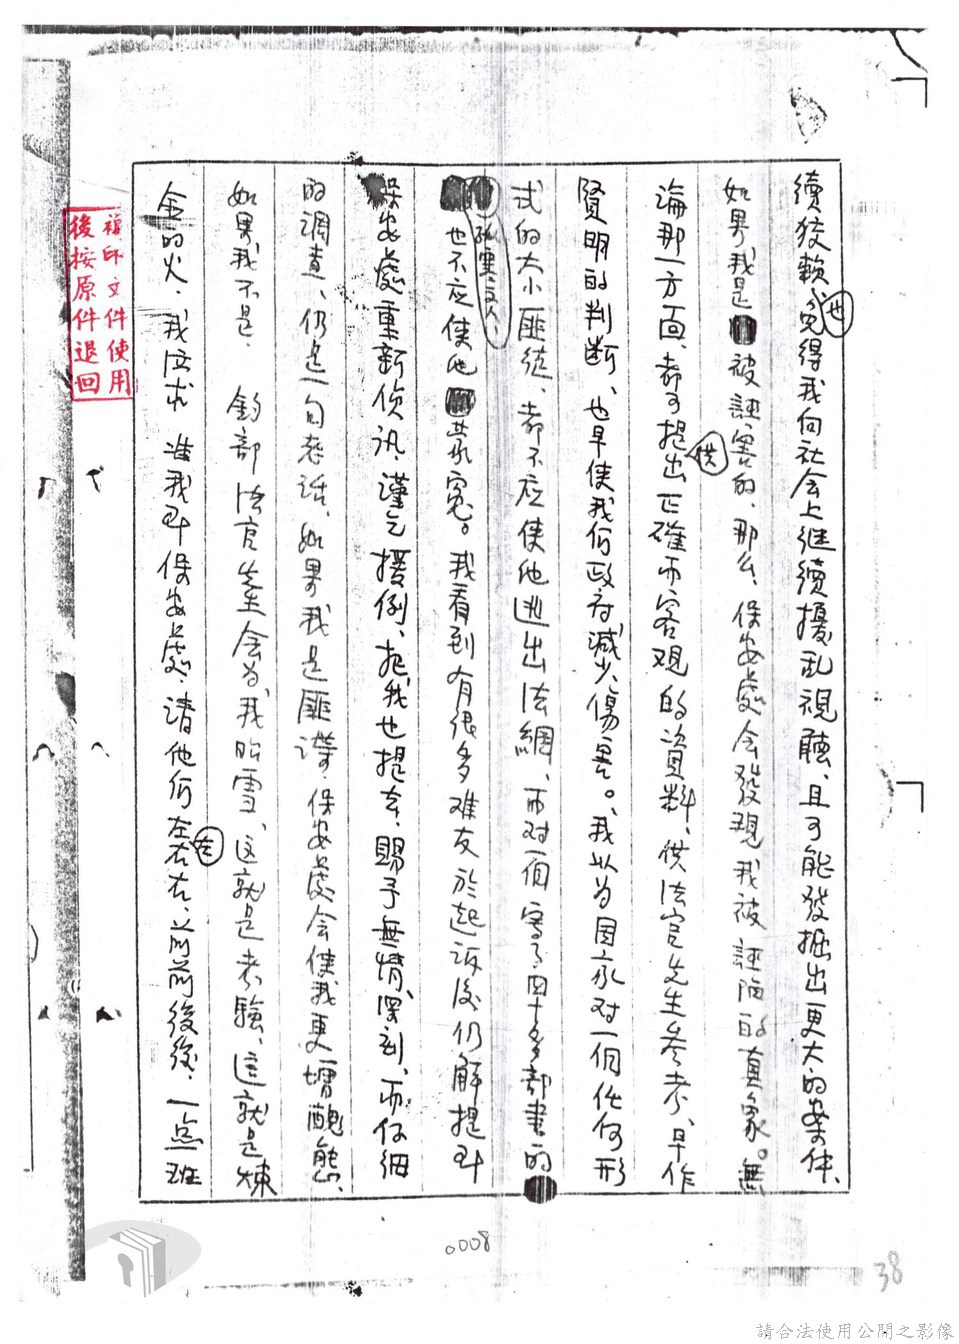 續狡賴、也免得我向社会上继續擾乱視聽、且可能發掘出更大的案件、
如果我是被誣害的、那么、保安處会發現我被誣陷的真象。無
論那一方面、都可提供出正確而客观的資料、供法官先生参考、早作
賢明的判断、也早使我何政府減少傷害。我以为国家对一個任何形
式的大小匪徒、都不应使他逃出法網、而对一個寫了四十多部書的
孤寒文人、也不应使他蒙冤。我看到有很多难友於起訴後仍解提到
保安處重新侦讯、谨乞援例、把我也提去、賜予無情、深刻、而仔細
的調查、仍是一句老话、如果我是匪諜、保安處会使我更增醜態、
如果我不是、鈞部法官先生会为我昭雪、这就是考驗、這就是煉
金的火、我应求准我到保安處、请他们左左右右、前前後後、一点班
複印文件使用
後按原件退回
0008
38
請合法使用公開之影像